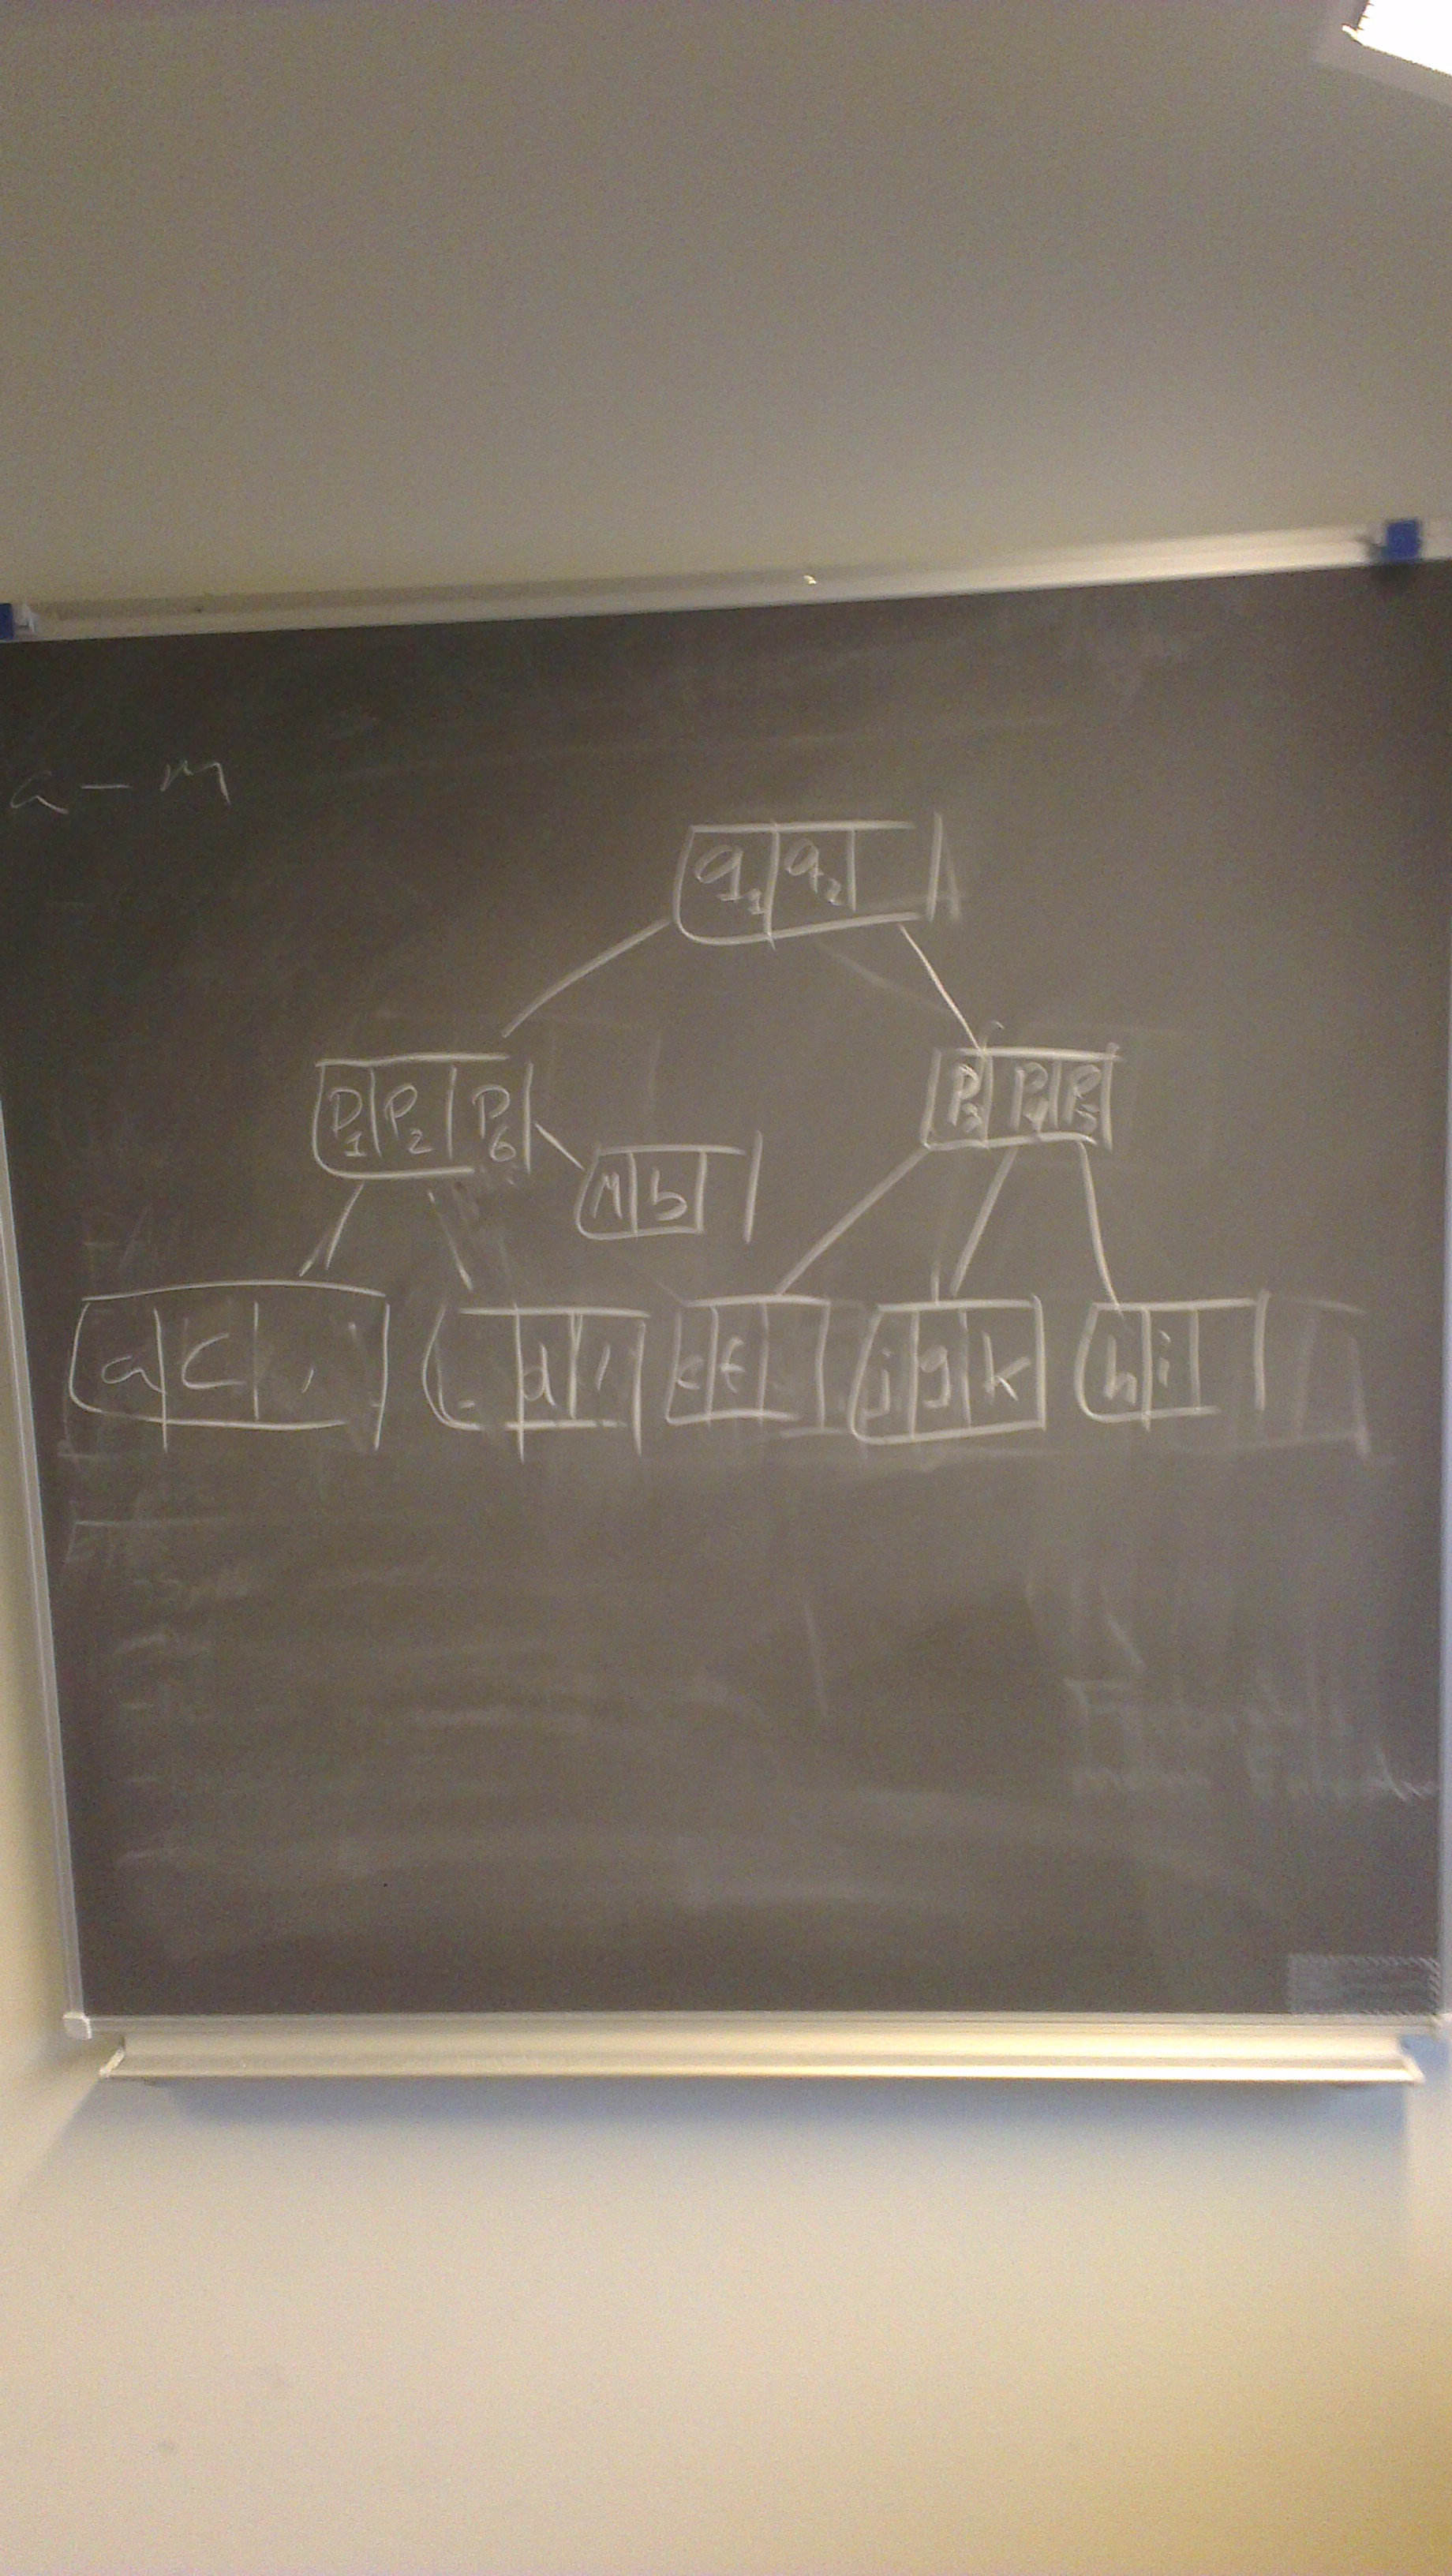 a - m
q1 q2
P1 P2 P6
P3 P4 P5
M b
a c
d
e f
j g k
h i